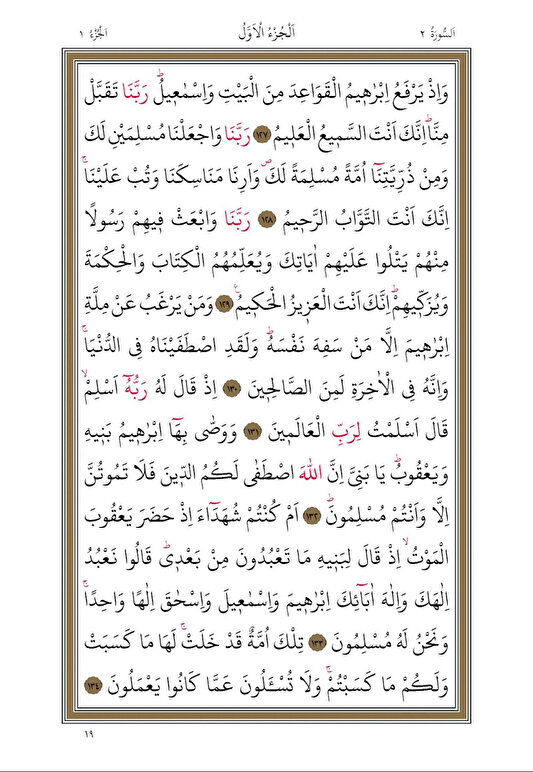 اَلسُّورَةُ ٢ اَلْجُزْءُ الْاَوَّلُ اَلْجُزْءُ ١
وَاِذْ يَرْفَعُ اِبْرٰه۪يمُ الْقَوَاعِدَ مِنَ الْبَيْتِ وَاِسْمٰع۪يلُۜ رَبَّنَا تَقَبَّلْ
مِنَّاۜ اِنَّكَ اَنْتَ السَّم۪يعُ الْعَل۪يمُ ﴿١٢٧﴾ رَبَّنَا وَاجْعَلْنَا مُسْلِمَيْنِ لَكَ
وَمِنْ ذُرِّيَّتِنَٓا اُمَّةً مُسْلِمَةً لَكَۖ وَاَرِنَا مَنَاسِكَنَا وَتُبْ عَلَيْنَاۚ
اِنَّكَ اَنْتَ التَّوَّابُ الرَّح۪يمُ ﴿١٢٨﴾ رَبَّنَا وَابْعَثْ ف۪يهِمْ رَسُولًا
مِنْهُمْ يَتْلُوا عَلَيْهِمْ اٰيَاتِكَ وَيُعَلِّمُهُمُ الْكِتَابَ وَالْحِكْمَةَ
وَيُزَكّ۪يهِمْۜ اِنَّكَ اَنْتَ الْعَز۪يزُ الْحَك۪يمُ۟ ﴿١٢٩﴾ وَمَنْ يَرْغَبُ عَنْ مِلَّةِ
اِبْرٰه۪يمَ اِلَّا مَنْ سَفِهَ نَفْسَهُۜ وَلَقَدِ اصْطَفَيْنَاهُ فِي الدُّنْيَاۚ
وَاِنَّهُ فِي الْاٰخِرَةِ لَمِنَ الصَّالِح۪ينَ ﴿١٣٠﴾ اِذْ قَالَ لَهُ رَبُّهُٓ اَسْلِمْۙ
قَالَ اَسْلَمْتُ لِرَبِّ الْعَالَم۪ينَ ﴿١٣١﴾ وَوَصّٰى بِهَٓا اِبْرٰه۪يمُ بَن۪يهِ
وَيَعْقُوبُۜ يَا بَنِيَّ اِنَّ اللّٰهَ اصْطَفٰى لَكُمُ الدّ۪ينَ فَلَا تَمُوتُنَّ
اِلَّا وَاَنْتُمْ مُسْلِمُونَۜ ﴿١٣٢﴾ اَمْ كُنْتُمْ شُهَدَٓاءَ اِذْ حَضَرَ يَعْقُوبَ
الْمَوْتُۙ اِذْ قَالَ لِبَن۪يهِ مَا تَعْبُدُونَ مِنْ بَعْد۪يۜ قَالُوا نَعْبُدُ
اِلٰهَكَ وَاِلٰهَ اٰبَٓائِكَ اِبْرٰه۪يمَ وَاِسْمٰع۪يلَ وَاِسْحٰقَ اِلٰهًا وَاحِدًاۚ
وَنَحْنُ لَهُ مُسْلِمُونَ ﴿١٣٣﴾ تِلْكَ اُمَّةٌ قَدْ خَلَتْۚ لَهَا مَا كَسَبَتْ
وَلَكُمْ مَا كَسَبْتُمْۚ وَلَا تُسْـَٔلُونَ عَمَّا كَانُوا يَعْمَلُونَ ﴿١٣٤﴾
١٩